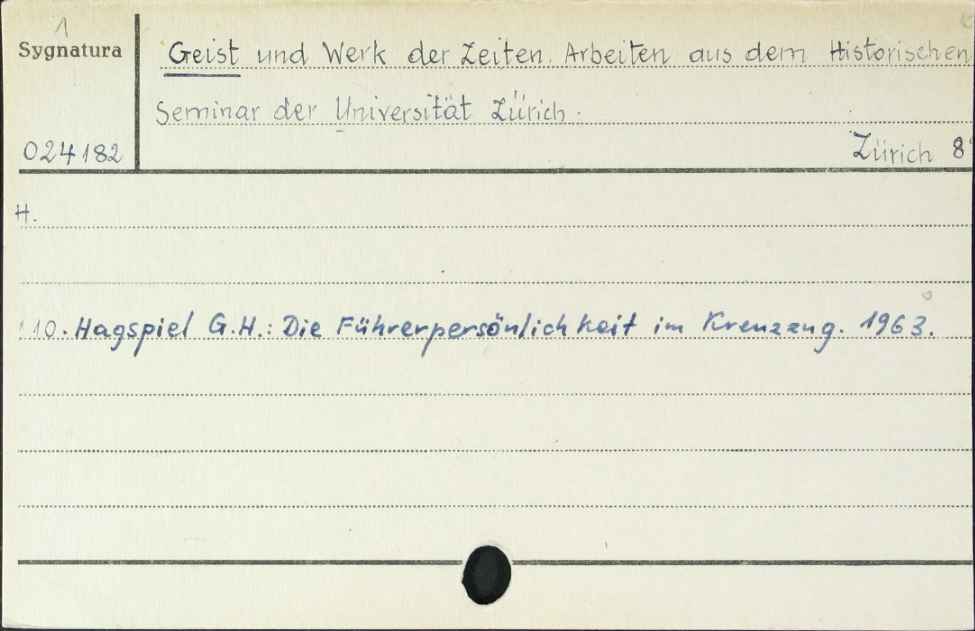 1
Sygnatura
Geist und Werk der Zeiten. Arbeiten aus dem Historischen
Seminar der Universität Zürich.
024182
Zürich 8°
H.
10. Hagspiel G.H.: Die Führerpersönlichkeit im Kreuzzug. 1963.